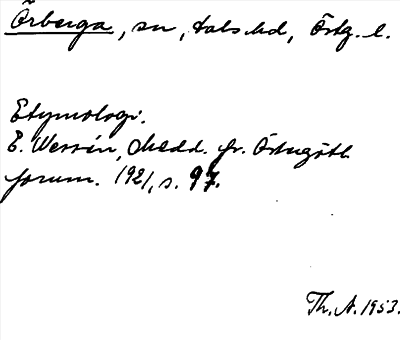 Örberga, sn, Dals hd, Östg. l.
Etymologi.
E. Wessén, Medd. fr. Östergötl.
fornm. 1921, s. 97.
Th. A. 1953.